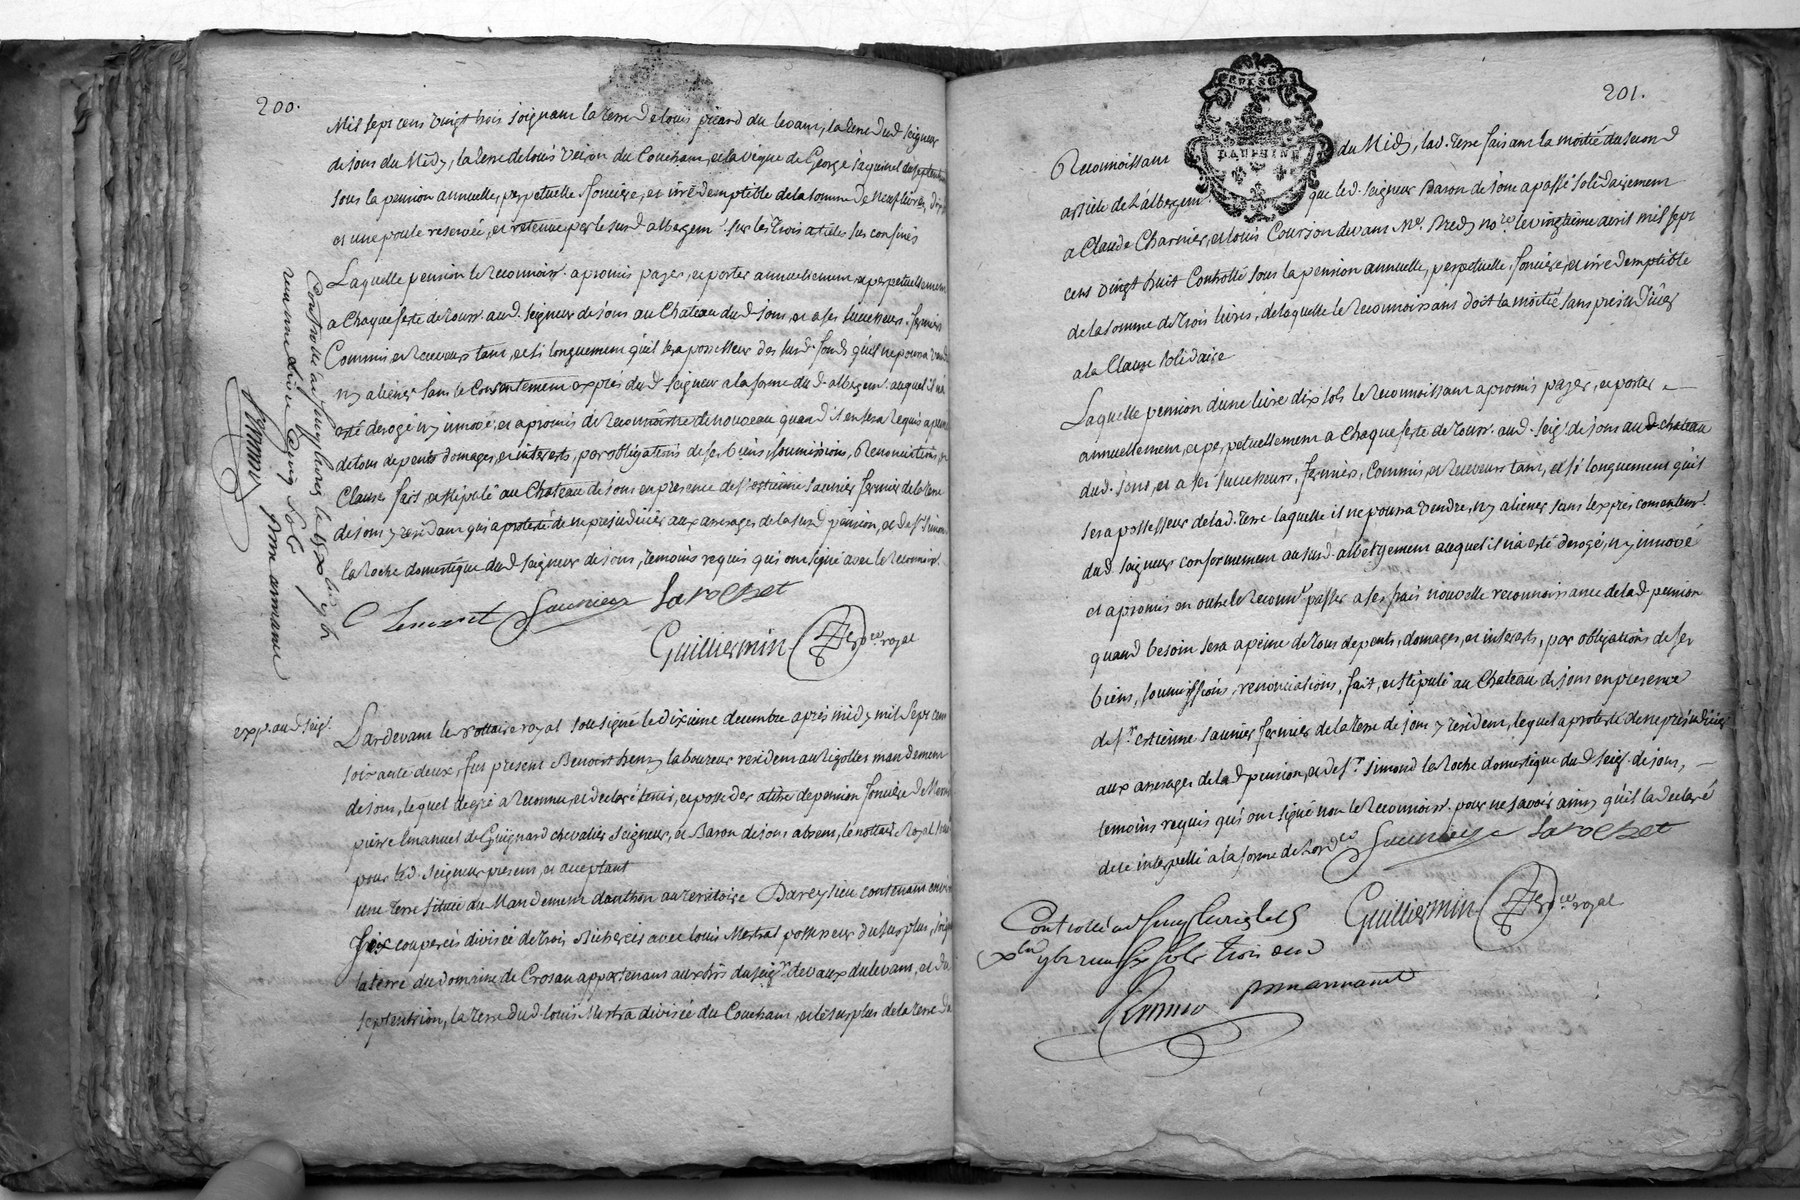 200.
Mil sept cens vingt trois joignant la terre de Louis picard du levant, la terre dud seigneur
de jons du Midy, la terre de louis Veion du Couchant, et la vigne de George Jaquinet du septentrion
sous la pension annuelle, perpetuelle fonciere, et irredemptible de la somme de neuf livres dix
et une poule reservée, et retenue par le susd albergemt. sur les trois articles sus confinés
Laquelle pension le reconnoiss. a promis payer, et porter annuellement et perpetuellement
a Chaque feste de touss. aud. seigneur de jons au Chateau dud jons, et a ses successeurs. fermiers
Commis et Receveurs tant, et si longuement quil sera possesseur des susd. fonds quil ne pourra vendre
ny aliener sans le Consentement exprès dud seigneur a la forme dud. albergemt. auquel il n'a
esté derogé ny innové, et a promis de reconnoistre de nouveau quand il en sera requis a peine
de tous depents domages, et interets, par obligations de ses biens, soumissions, Renonciations, et
Clauses fait, et stipulé au Chateau de jons en presence de sr estienne saunier fermier de la terre
de jons y residant qui a protesté de ne prejudicier aux arrerages de la susd pension, et de sr simond
la Roche domestique dud seigneur de jons, temoins requis qui ont signé avec le reconnoiss.
C Clement Saunier Laroche
Guilliermin nore. royal
Controllé au
reçu une livre cinq sols
pour annanel
exp. aud seigr.
Pardevant le nottaire royal sousigné le dixieme decembre après midy mil sept cens
soixante deux, fut present Benoist henry laboureur resident au rigolles mandement
de jons, lequel de gré a Reconnu, et declaré tenir, et posseder a titre de pension fonciere de Messire
pierre Emanuel de Guignard chevalier seigneur, et Baron de jons absent, le nottaire Royal
pour led. seigneur present, et acceptant
une Terre située au Mandement danthon au territoire Dareysieu contenant environ
six couperées divisée de trois bicherées avec louis Mestral possesseur du surplus, joignant
la terre du domaine de Crosau appartenant aux hoirs du seigr. de vaux du levant, et du
septentrion, la terre dud. louis Mestra divisée du Couchant, et le surplus de la terre du
201.
GENERALITE
DAUPHINE
Reconnoissant du Midy, lad. terre faisant la moitié du second
article de lalbergemt. que led. seigneur Baron de jons a passé solidairement
a Claude Charnier, et louis Courjon devant Me. Bredy nore. le vingtieme avril mil sept
cens vingt huit Controllé sous la pension annuelle, perpetuelle, fonciere, et irredemptible
de la somme de trois livres, de laquelle le Reconnoissant doit la moitié sans prejudicier
a la Clause solidaire
Laquelle pension dune livre dix sols le reconnoissant a promis payer, et porter
annuellement, et perpetuellement a Chaque feste de touss. aud. seigr. de jons aud chateau
dud. jons, et a ses successeurs, fermiers, Commis, et Receveurs tant, et si longuement quil
sera possesseur de lad. terre laquelle il ne pourra vendre, ny aliener sans lexprès consentemt.
dud seigneur conformement au susd. albergement auquel il n'a esté derogé, ny innové
et a promis en outre le reconnt. passer a ses frais nouvelle reconnoissance de lad pension
quand besoin sera a peine de tous depents, domages, et interets, par obligations de ses
biens, soumissions, renonciations, fait, et stipulé au Chateau de jons en presence
de sr. estienne saunier fermier de la terre de jons y resident, lequel a protesté de ne prejudicier
aux arrerages de lad pension, et de sr. simond la Roche domestique dud seigr. de jons,
temoins requis qui ont signé non le reconnoiss. pour ne savoir ainsy quil la declaré
de ce interpellé a la forme de lordce Saunier Laroche
Guilliermin nore. royal
Controllé a
sols trois den
pour annanel